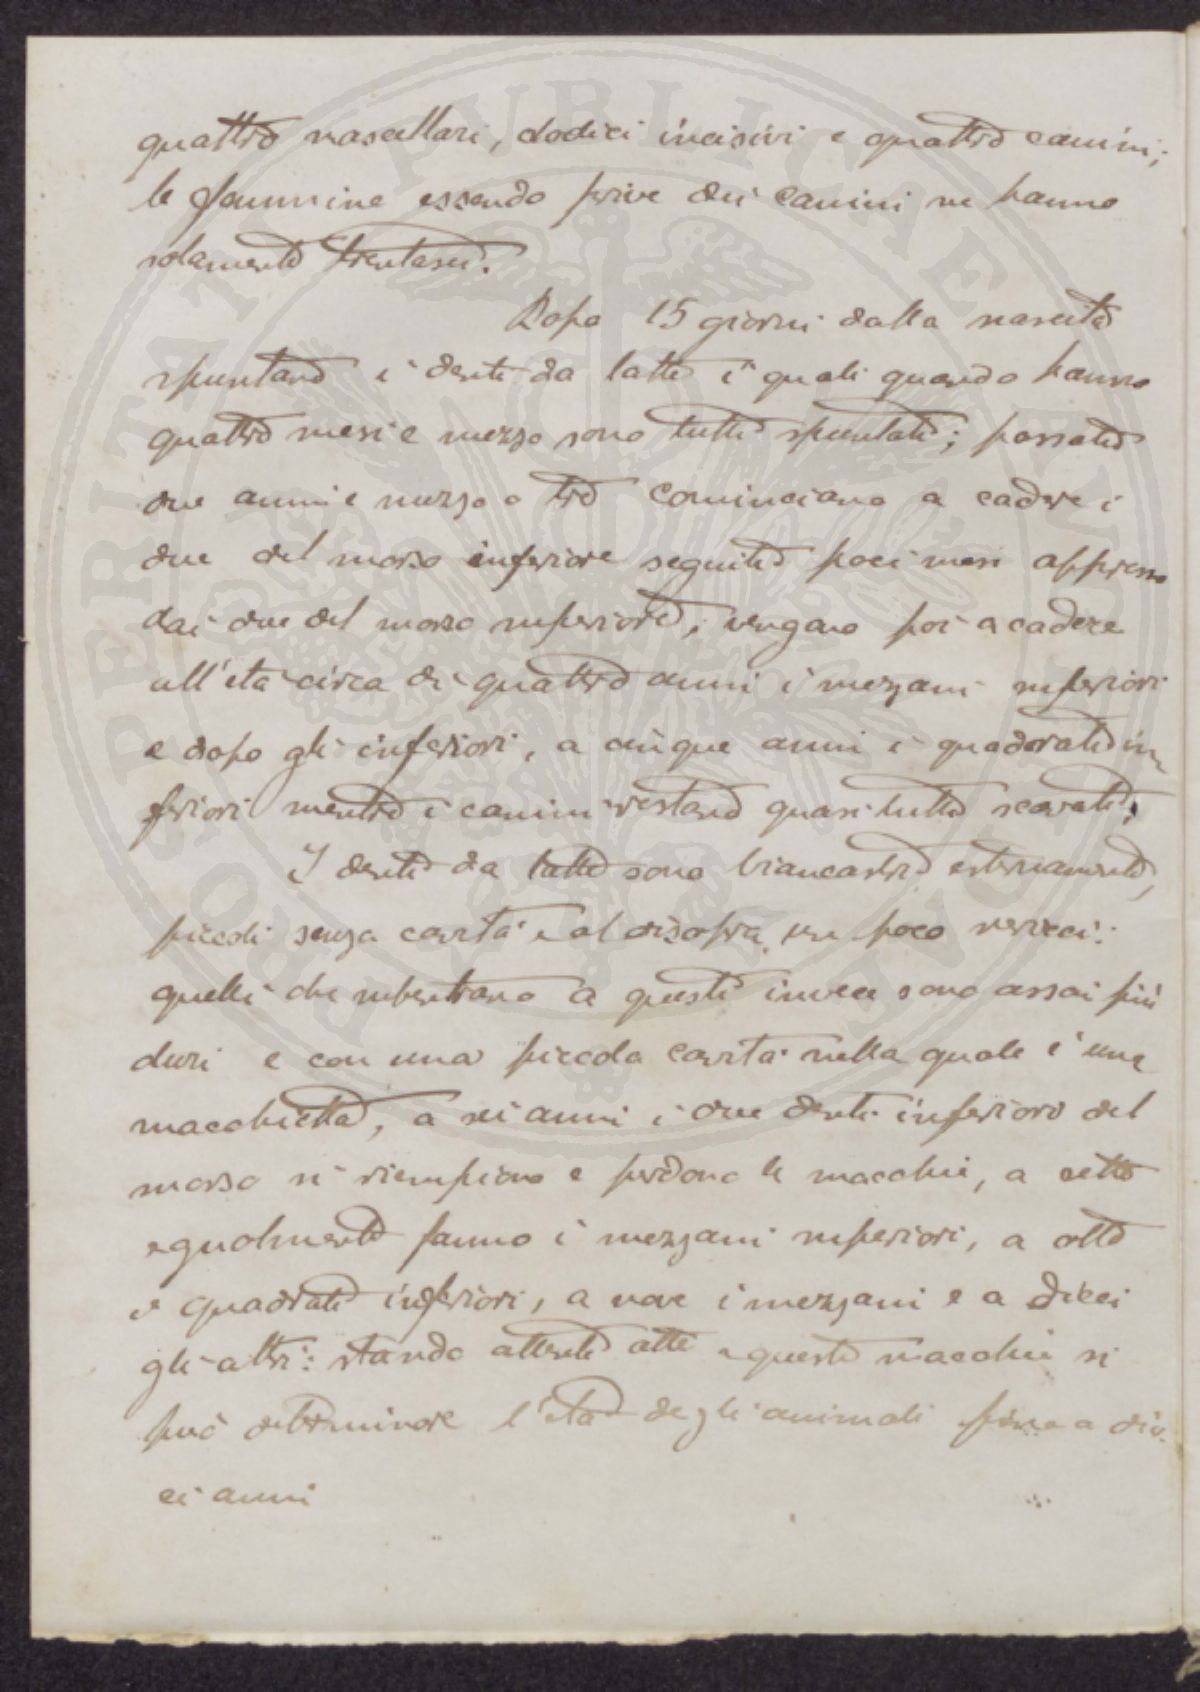 quattro mascellari, dodici incisivi e quattro canini;
le femmine essendo prive dei canini ne hanno
solamente trentasei.
Dopo 15 giorni dalla nascita
spuntano i denti da latte i quali quando hanno
quattro mesi e mezzo sono tutti spuntati; passati
due anni e mezzo o tre cominciano a cadere i
due del morso inferiore seguiti poci mesi appresso
dai due del morso superiore, vengano poi a cadere
all'età circa di quattro anni i mezzani superiori
e dopo gli inferiori, a cinque anni i quadrati in
feriori mentre i canini restano quasi tutti scavati;
I denti da latte sono biancastri esternamente,
piccoli senza cavità e al disopra un poco
quelli che subentrano a questi invece sono assai più
duri e con una piccola cavità nella quale è una
macchietta, a sei anni i due denti inferiori del
morso si riempiono e perdono le macchie, a sette
egualmente fanno i mezzani superiori, a otto
i quadrati inferiori, a nove i mezzani e a dieci
gli altri: stando attenti atte a queste macchie si
può determinare l'età degli animali fino a die
ci anni
PRO SPERITAT PVBLICAE NOVAE